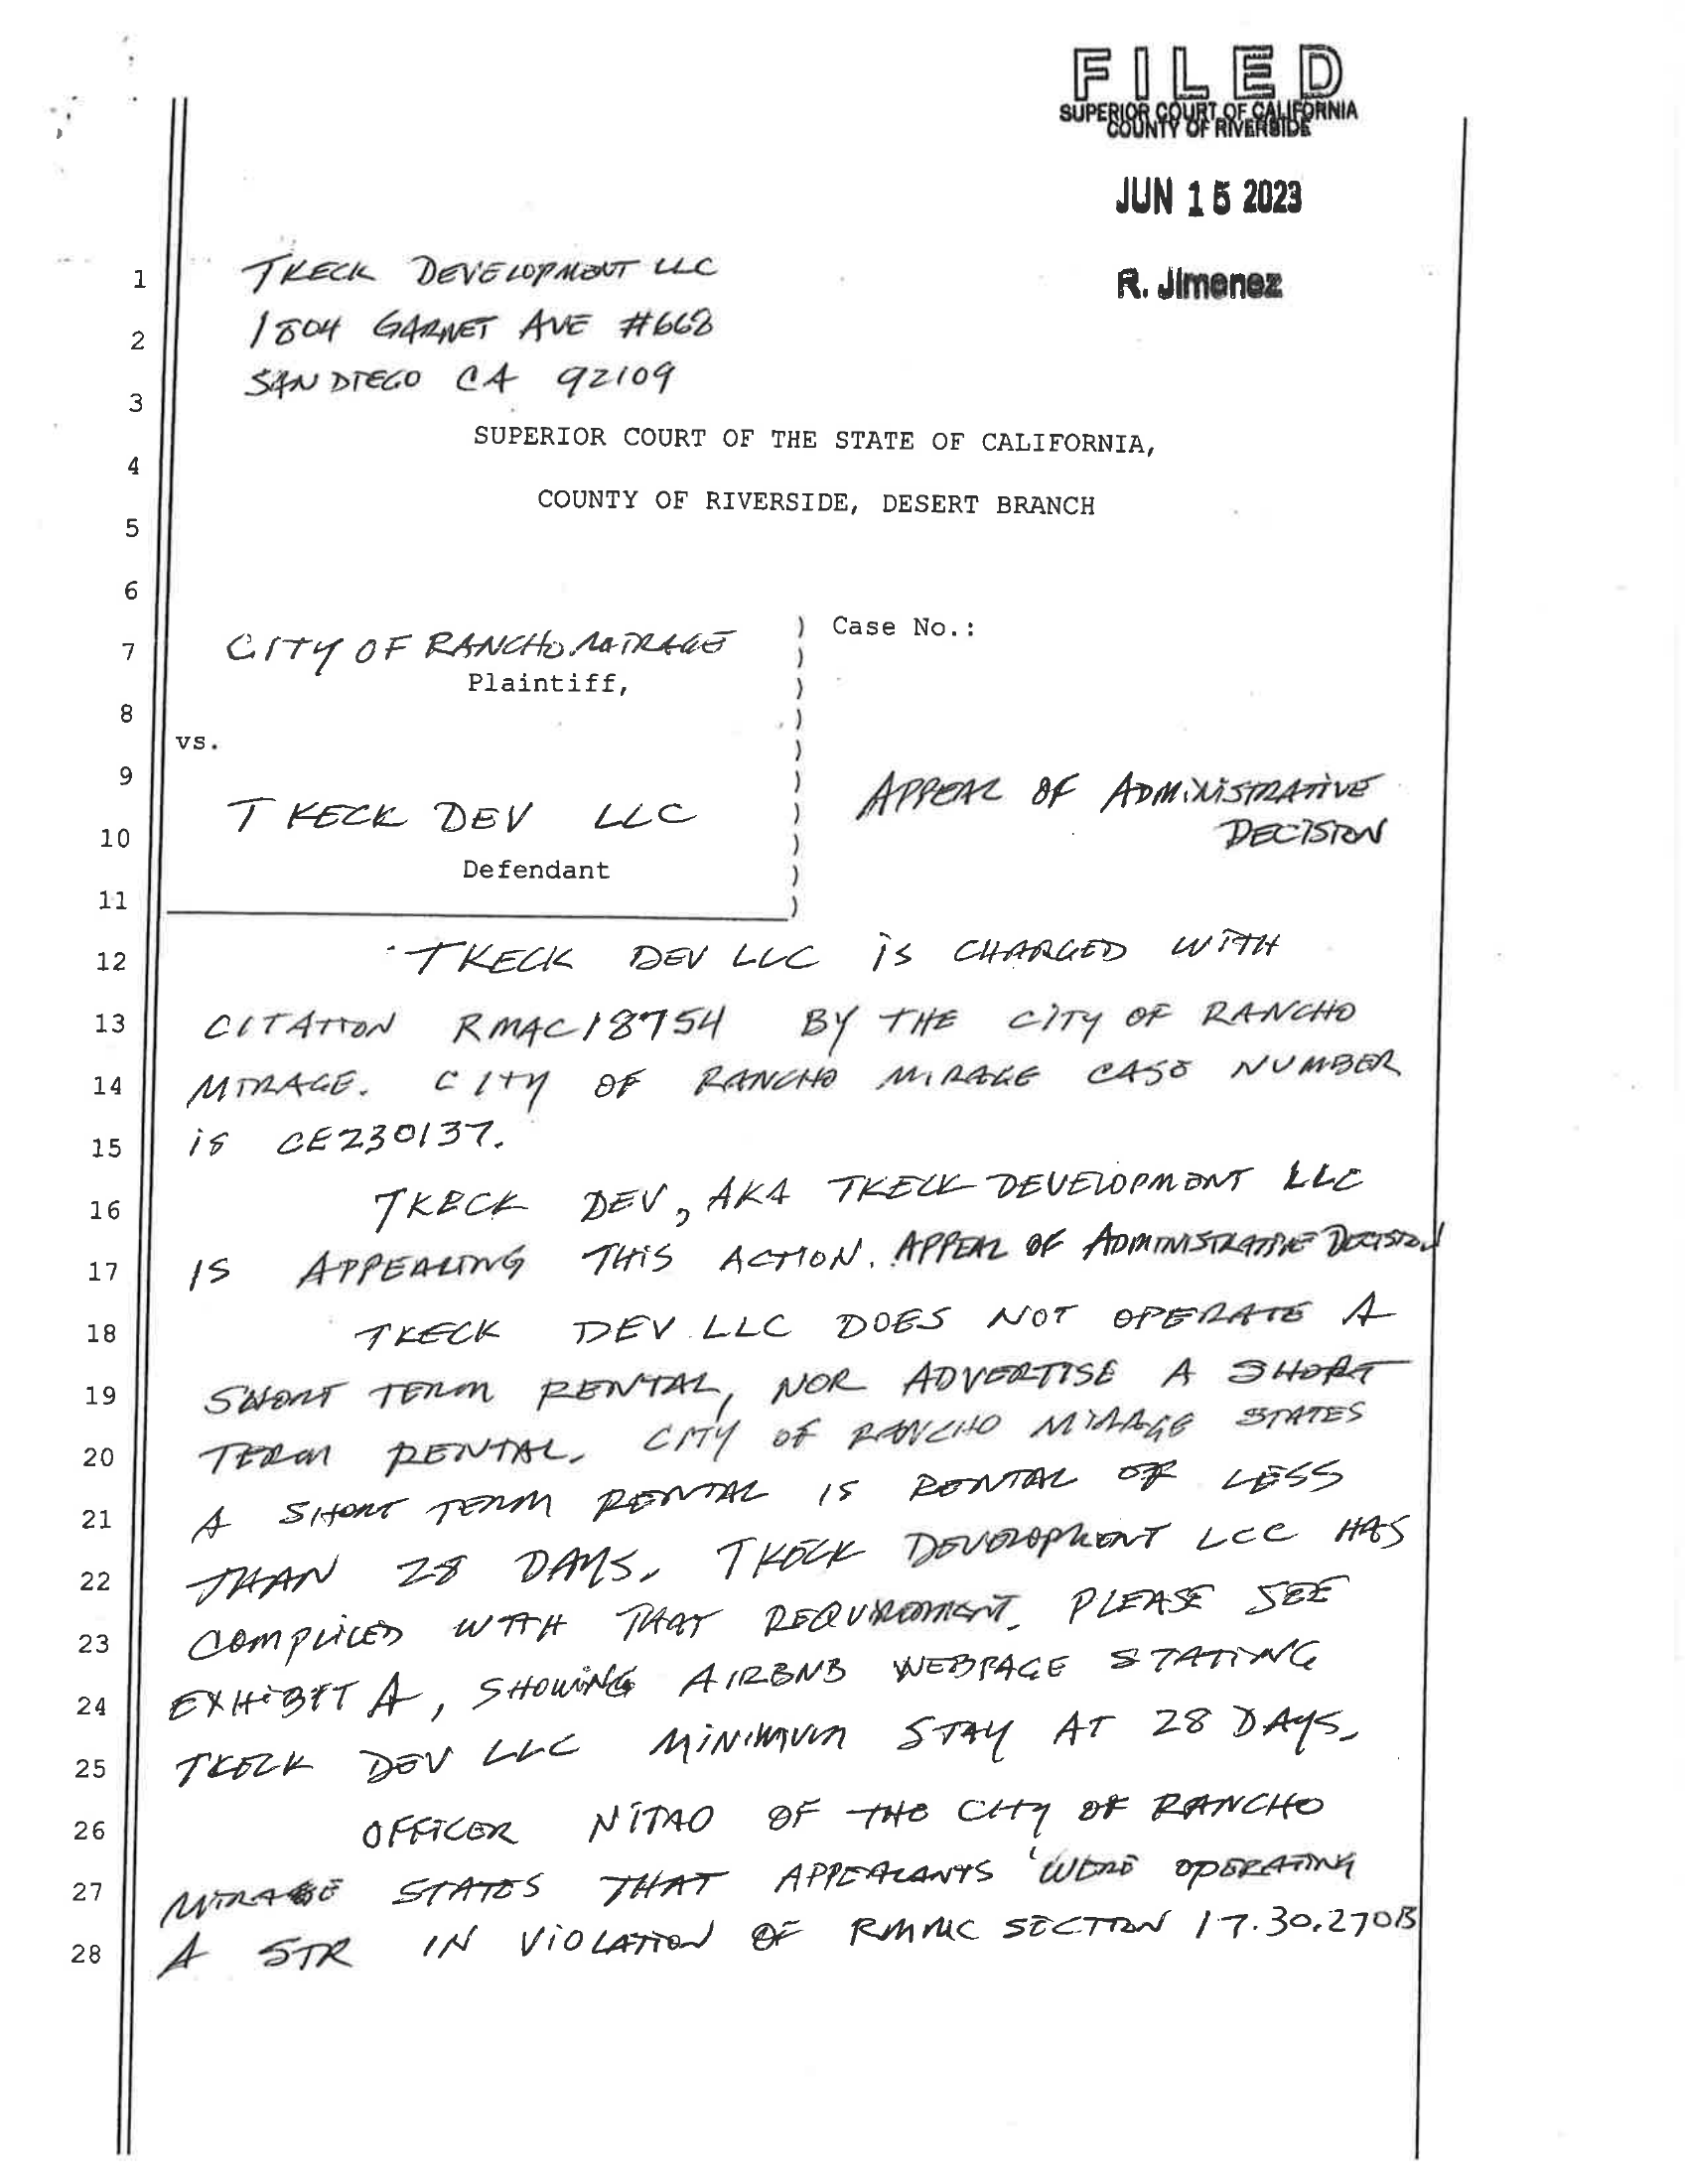 FILED
SUPERIOR COURT OF CALIFORNIA
COUNTY OF RIVERSIDE
JUN 15 2023
R. Jimenez
1 TKECK DEVELOPMENT LLC
2 1804 GARNET AVE #668
3 SAN DIEGO CA 92109
SUPERIOR COURT OF THE STATE OF CALIFORNIA,
4
COUNTY OF RIVERSIDE, DESERT BRANCH
5
6
7 CITY OF RANCHO MIRAGE ) Case No.:
Plaintiff, )
8 )
vs. )
9 ) APPEAL OF ADMINISTRATIVE
10 T KECK DEV LLC ) DECISION
Defendant )
11 )
12 TKECK DEV LLC IS CHARGED WITH
13 CITATION RMAC18754 BY THE CITY OF RANCHO
14 MIRAGE. CITY OF RANCHO MIRAGE CASE NUMBER
15 IS CE230137.
16 TKECK DEV, AKA TKECK DEVELOPMENT LLC
17 IS APPEALING THIS ACTION. APPEAL OF ADMINISTRATIVE DECISION
18 TKECK DEV LLC DOES NOT OPERATE A
19 SHORT TERM RENTAL, NOR ADVERTISE A SHORT
20 TERM RENTAL. CITY OF RANCHO MIRAGE STATES
21 A SHORT TERM RENTAL IS RENTAL OF LESS
22 THAN 28 DAYS. TKECK DEVELOPMENT LLC HAS
23 COMPLIED WITH THAT REQUIREMENT. PLEASE SEE
24 EXHIBIT A, SHOWING AIRBNB WEBPAGE STATING
25 TKECK DEV LLC MINIMUM STAY AT 28 DAYS.
26 OFFICER NITAO OF THE CITY OF RANCHO
27 MIRAGE STATES THAT APPEALANTS 'WERE OPERATING
28 A STR IN VIOLATION OF RMMC SECTION 17.30.270B